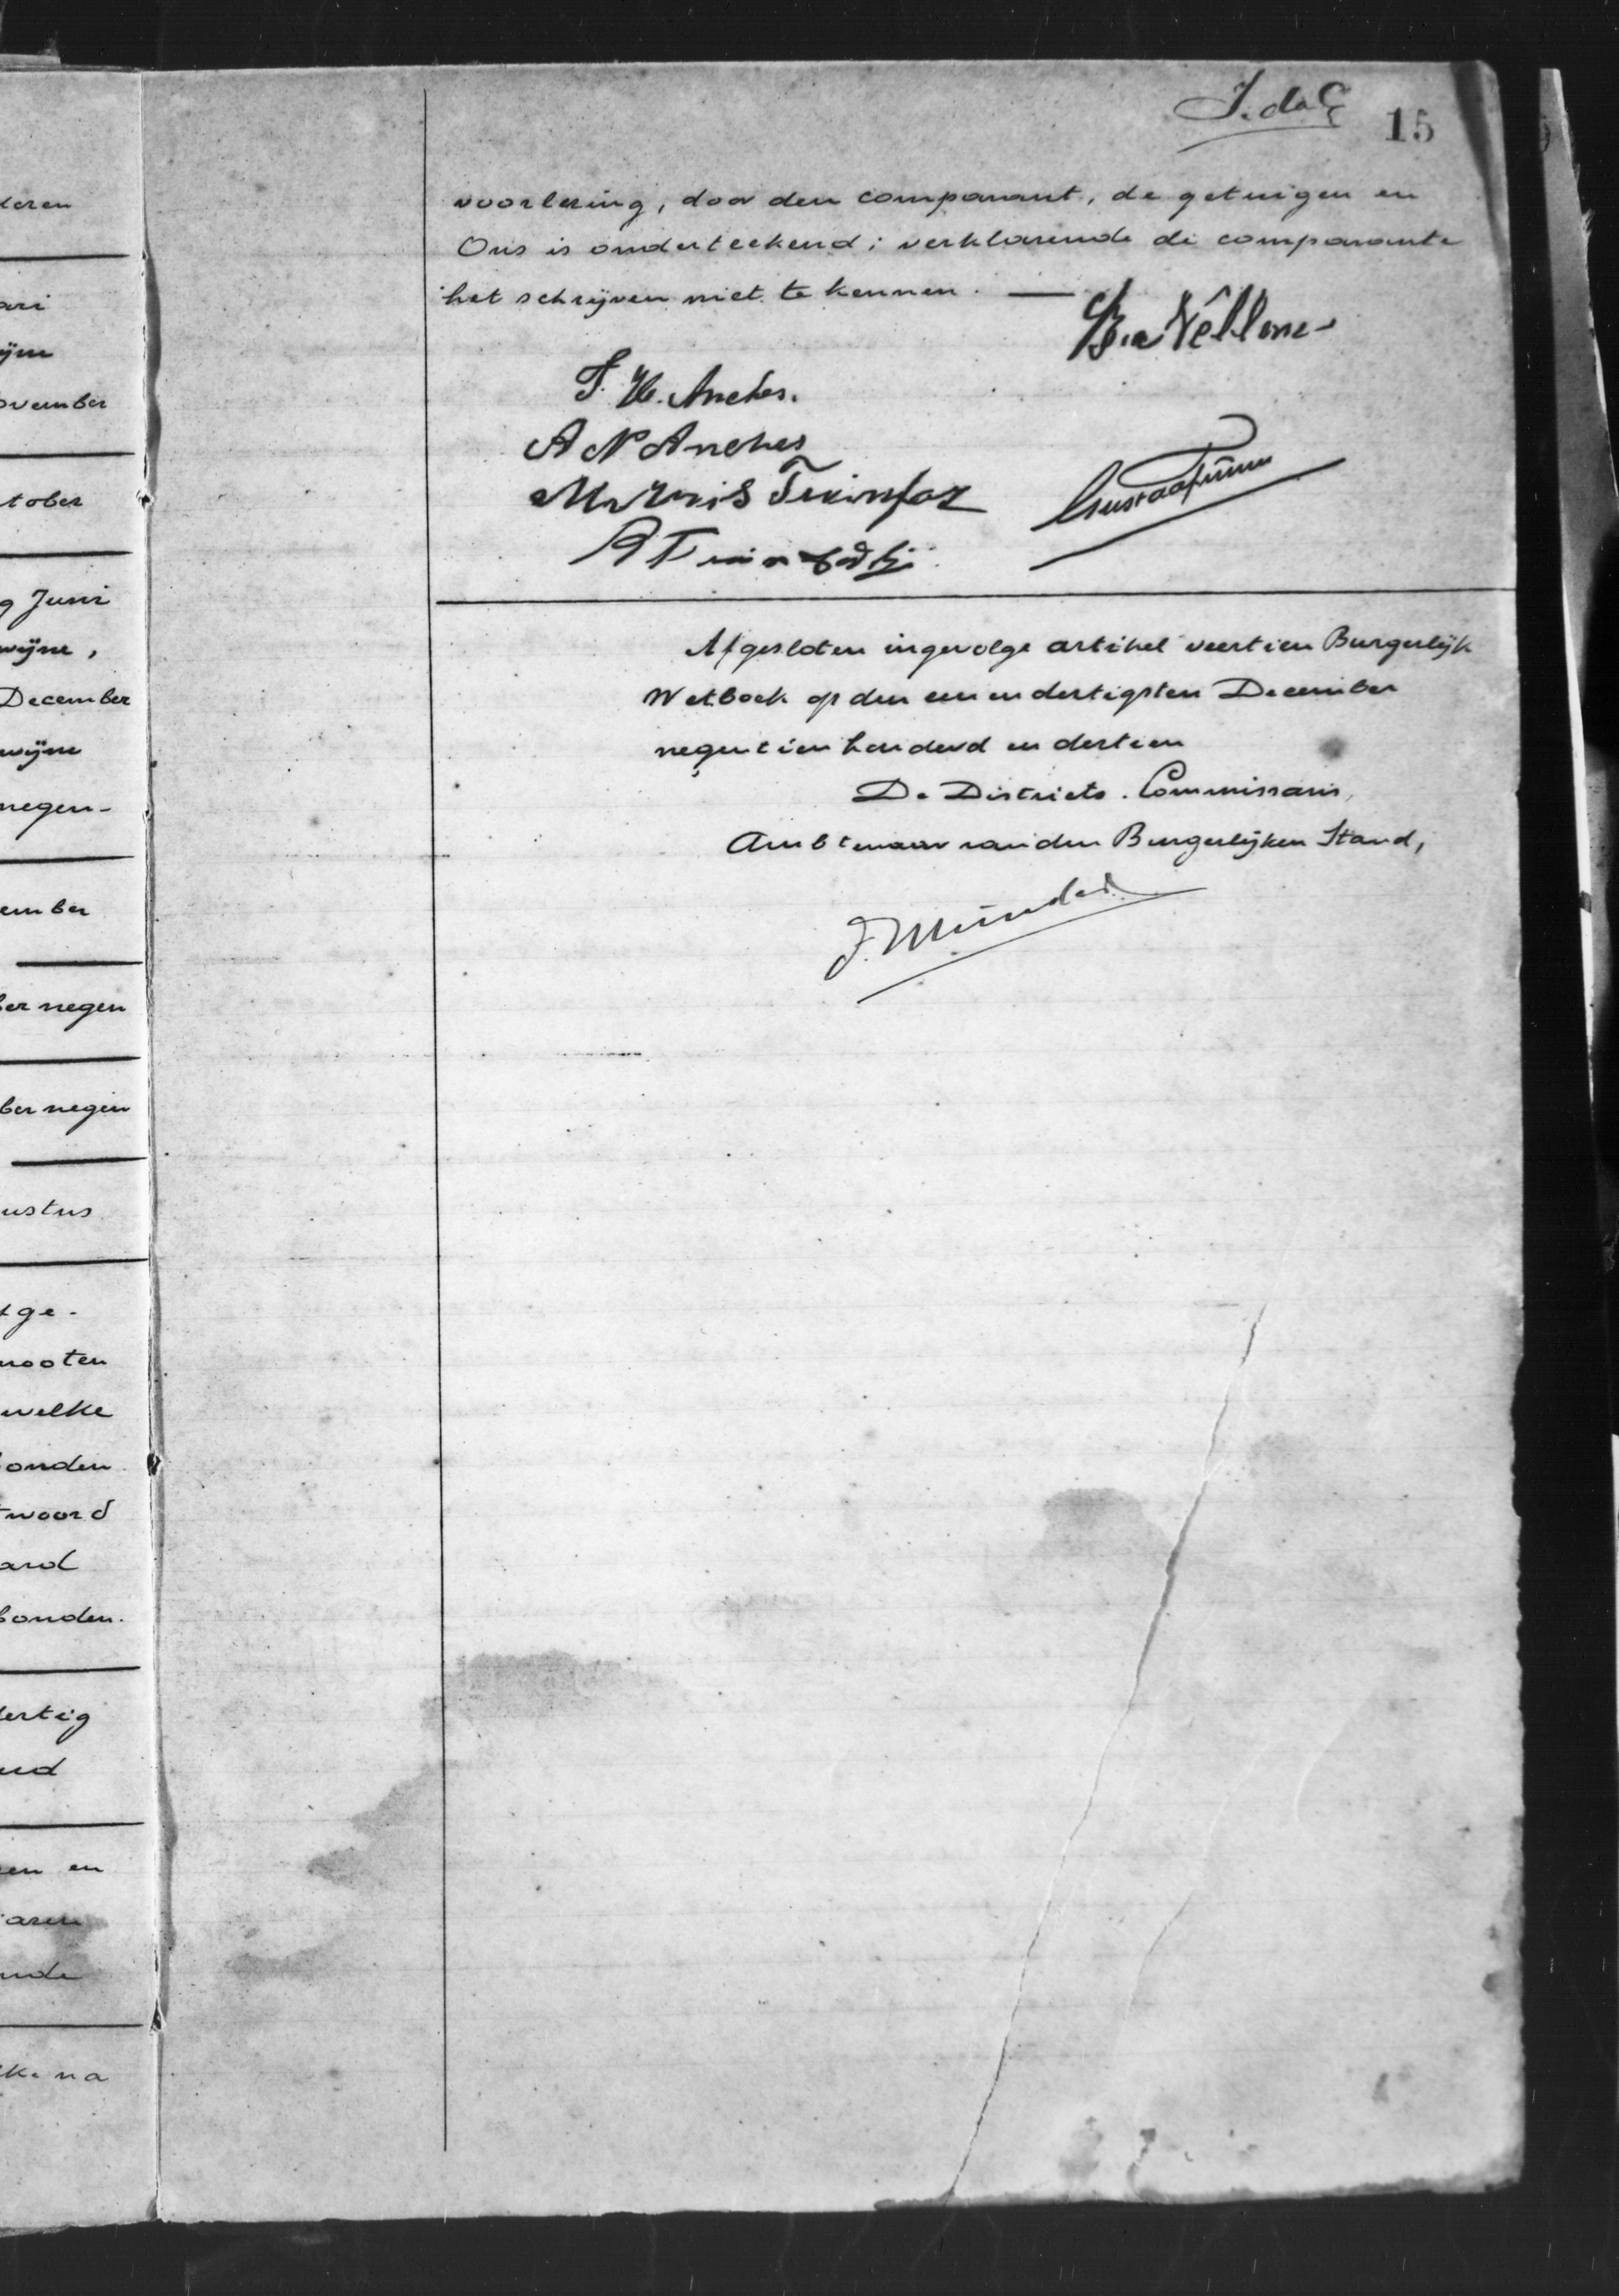 J. da C
15
voorlezing, door den comparant, de getuigen en
Ons is onderteekend; verklarende de comparante
het schrijven niet te kennen. —
J. H. Anches.
A N Anches
Afgesloten ingevolge artikel veertien Burgerlijk
Wetboek op den een en dertigsten December
negentienhonderd en dertien
De Districts-Commissaris,
Ambtenaar van den Burgerlijken Stand,
deren
ari
ijne
ovember
tober
g Juni
wijne,
December
wijne
negen-
ember
ber negen
ber negen
ustus
tge-
nooten
welke
onden
twoord
and
bonden.
dertig
nd
en en
aren
nde
ke na